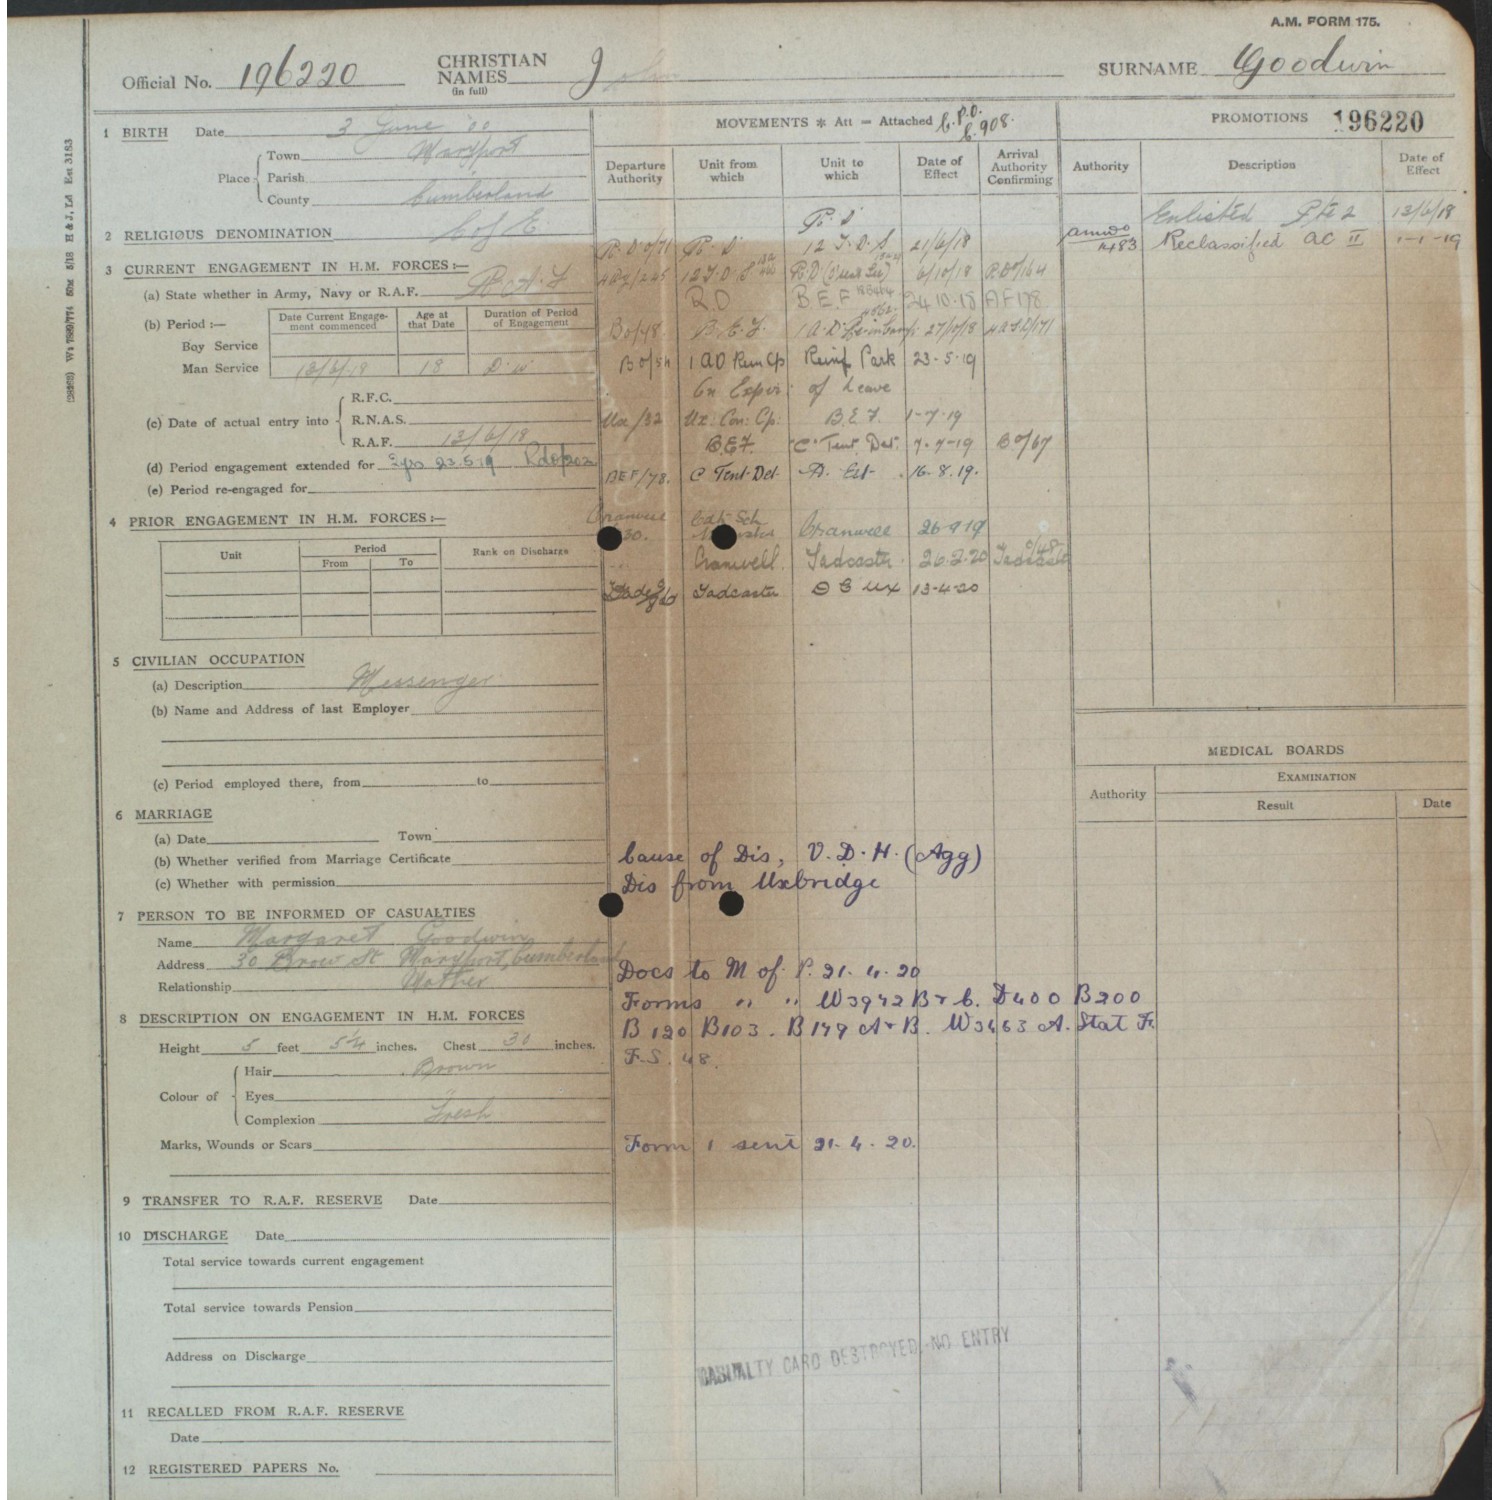 A.M. FORM 175.
Official No. 196220 CHRISTIAN NAMES (in full) John SURNAME Goodwin
(28463) Wt 7869/774 50M 5/18 H & J, Ld Est 3183
1 BIRTH Date 3 June '00
Place: Town Maryport
Parish
County Cumberland
2 RELIGIOUS DENOMINATION C of E
3 CURRENT ENGAGEMENT IN H.M. FORCES:—
(a) State whether in Army, Navy or R.A.F. R.A.F
(b) Period :— Date Current Engagement commenced Age at that Date Duration of Period of Engagement
Boy Service
Man Service 13/6/18 18 D.W.
(c) Date of actual entry into R.F.C.
R.N.A.S.
R.A.F. 13/6/18
(d) Period engagement extended for 2yrs 23.5.19
(e) Period re-engaged for
4 PRIOR ENGAGEMENT IN H.M. FORCES:—
Unit Period Rank on Discharge
From To
5 CIVILIAN OCCUPATION
(a) Description Messenger
(b) Name and Address of last Employer
(c) Period employed there, from to
6 MARRIAGE
(a) Date Town
(b) Whether verified from Marriage Certificate
(c) Whether with permission
7 PERSON TO BE INFORMED OF CASUALTIES
Name Margaret Goodwin
Address 30 Brow St Maryport, Cumberland
Relationship Mother
8 DESCRIPTION ON ENGAGEMENT IN H.M. FORCES
Height 5 feet 5¼ inches. Chest 30 inches.
Colour of Hair Brown
Eyes "
Complexion Fresh
Marks, Wounds or Scars
9 TRANSFER TO R.A.F. RESERVE Date
10 DISCHARGE Date
Total service towards current engagement
Total service towards Pension
Address on Discharge
11 RECALLED FROM R.A.F. RESERVE
Date
12 REGISTERED PAPERS No.
MOVEMENTS * Att = Attached C.P.O. C.908.
Departure Authority Unit from which Unit to which Date of Effect Arrival Authority Confirming
R.D.O/71 R.D 12 T.D.S 21/6/18
12 T.D.S R.D 6/10/18 R.D.O/164
R.D B.E.F 24.10.18 AF178
BO/48. B.E.F. 1 A.D. 27/10/18
BO/54 1 AD Rein Cp Reinf Park 23-5-19
On Expir: of leave
Ux/32 Ux: Con: Cp: B.E.F. 1-7-19
B.E.F "C" Tent. Det. 7-7-19 BO/67
BEF/78. C Tent. Det. 16.8.19.
Cranwell 30. Cdt Sch Cranwell 26-9-19
Cranwell Tadcaster 26.2.20 Tadcaster 8/48
Tadcaster Ux 13-4-20
Cause of Dis, V.D.H. (Agg)
Dis from Uxbridge
Docs to M of P. 21.4.20
Forms " " W3972 B & C. D400 B200
B120 B103. B179 A & B. W3463 A. Stat F.
F.S. 48.
Form 1 sent 21.4.20.
CASUALTY CARD DESTROYED. NO ENTRY
PROMOTIONS 196220
Authority Description Date of Effect
Enlisted Pte 2 13/6/18
amwo 1483 Reclassified AC II 1-1-19
MEDICAL BOARDS
Authority EXAMINATION
Result Date